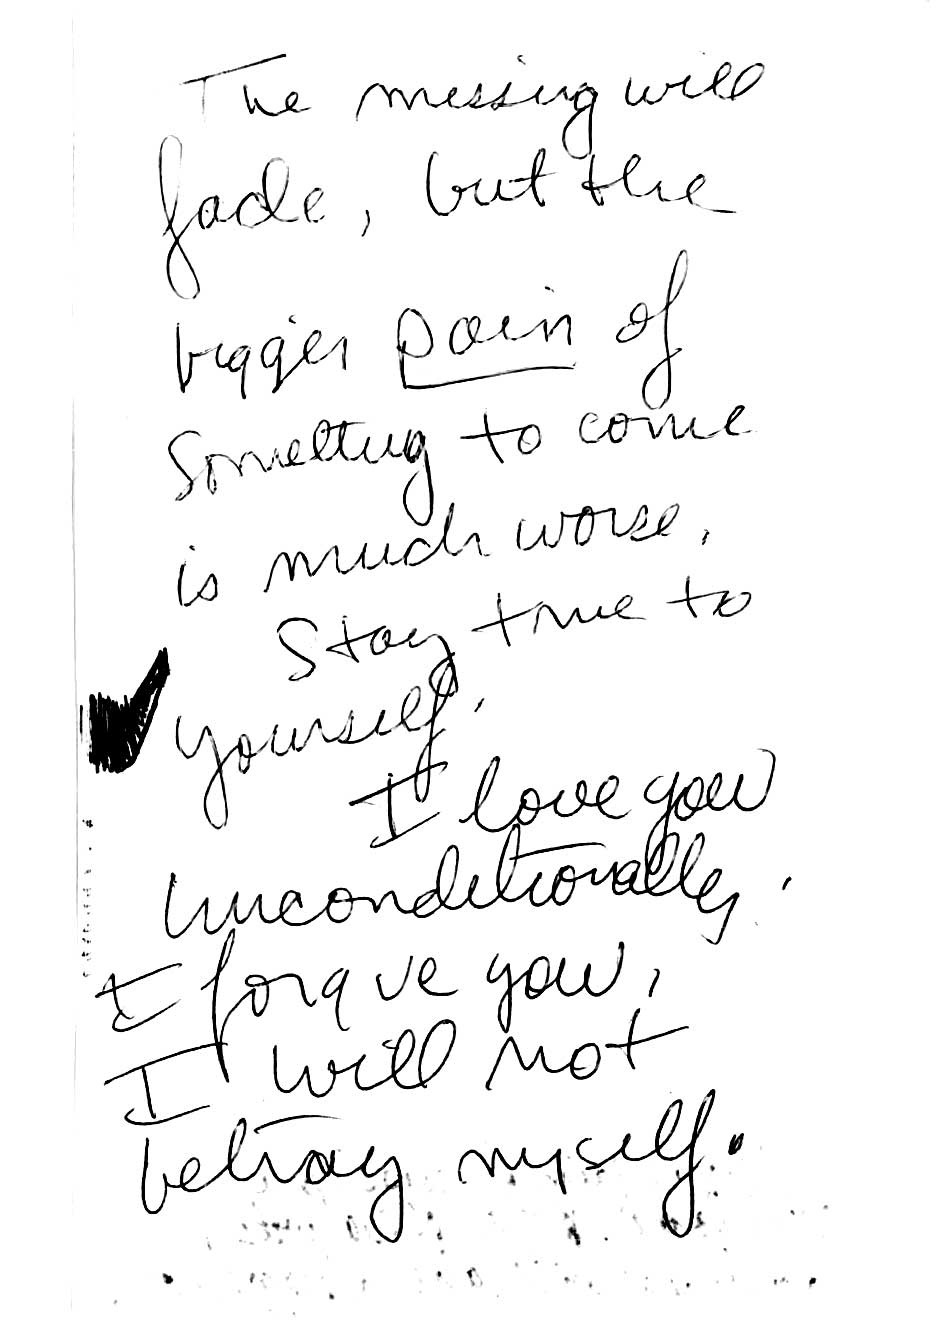 The missing will
fade, but the
bigger pain of
Something to come
is much worse.
Stay true to
yourself.
I love you
unconditionally.
I forgive you,
I will not
betray myself.